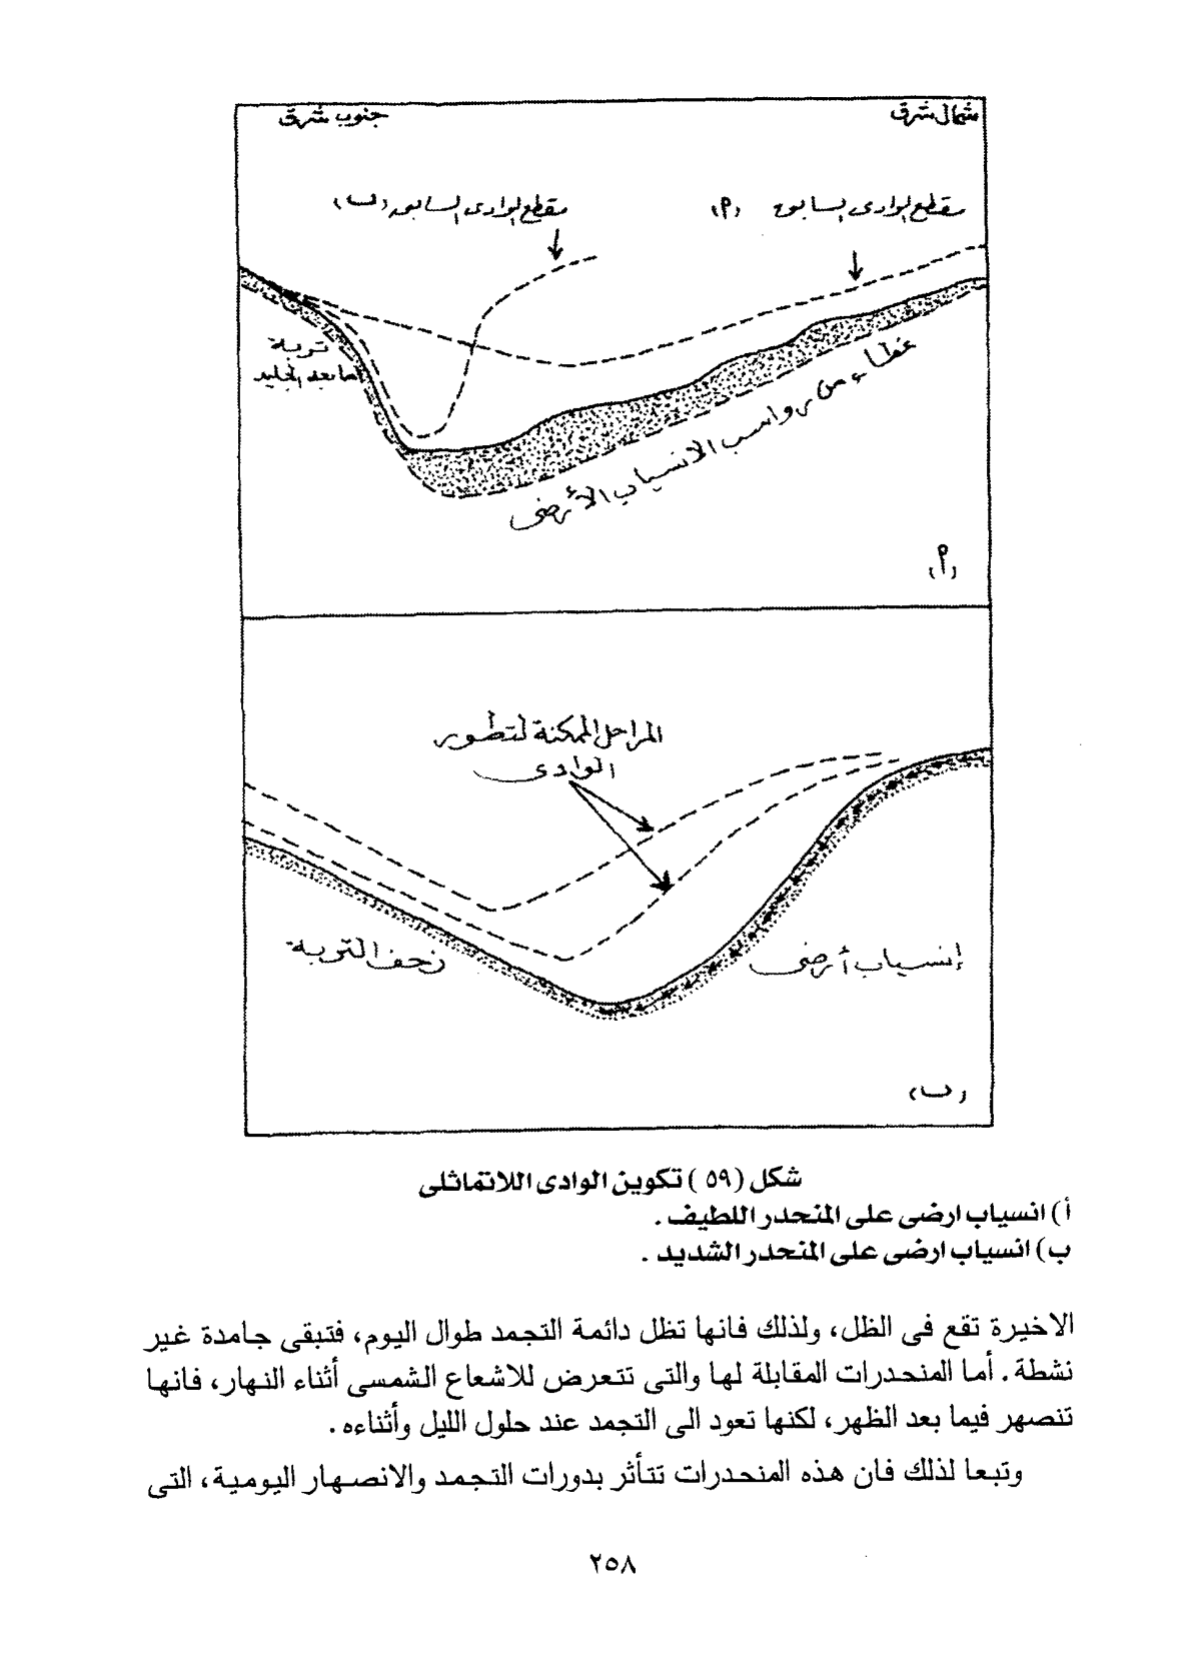 شمال شرق
جنوب شرق
مقطع الوادى السابق (أ)
مقطع الوادى السابق (ب)
تربة
ما بعد الجليد
غطاء من رواسب الانسياب الأرضى
(أ)
المراحل الممكنة لتطور
الوادى
زحف التربة
إنسياب أرضى
(ب)
شكل (٥٩) تكوين الوادى اللاتماثلى
أ) انسياب ارضى على المنحدر اللطيف .
ب) انسياب ارضى على المنحدر الشديد .
الاخيرة تقع فى الظل، ولذلك فانها تظل دائمة التجمد طوال اليوم، فتبقى جامدة غير
نشطة . أما المنحدرات المقابلة لها والتى تتعرض للاشعاع الشمسى أثناء النهار، فانها
تنصهر فيما بعد الظهر، لكنها تعود الى التجمد عند حلول الليل وأثناءه .
وتبعا لذلك فان هذه المنحدرات تتأثر بدورات التجمد والانصهار اليومية، التى
٢٥٨